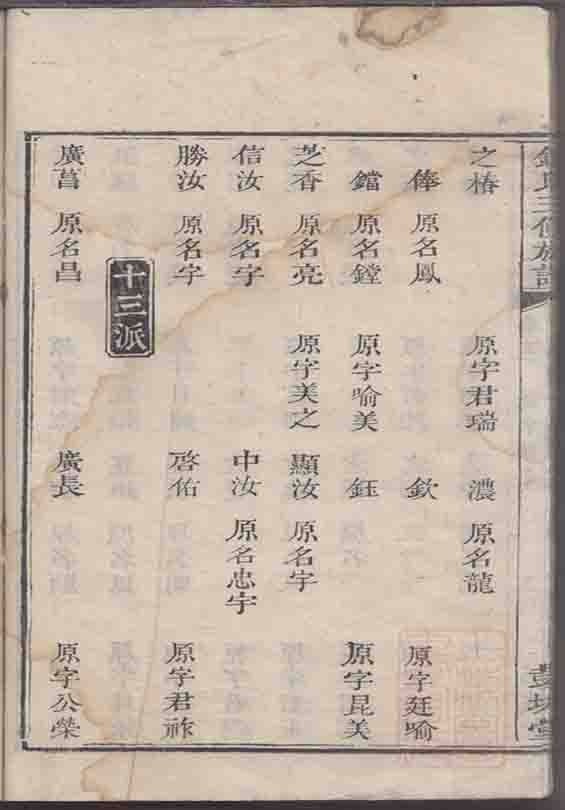 氏三修族譜 彭城堂
之椿 原字君瑞 濃 原名龍
俸 原名鳳 欽 原字廷喻
鐺 原名鏜 原字喻美 鈺 原字昆美
芝香 原名亮 原字美之 顯汝 原名字
信汝 原名字 中汝 原名忠宇
勝汝 原名字 啓佑 原字君祚
十三派
廣菖 原名昌 廣長 原字公榮